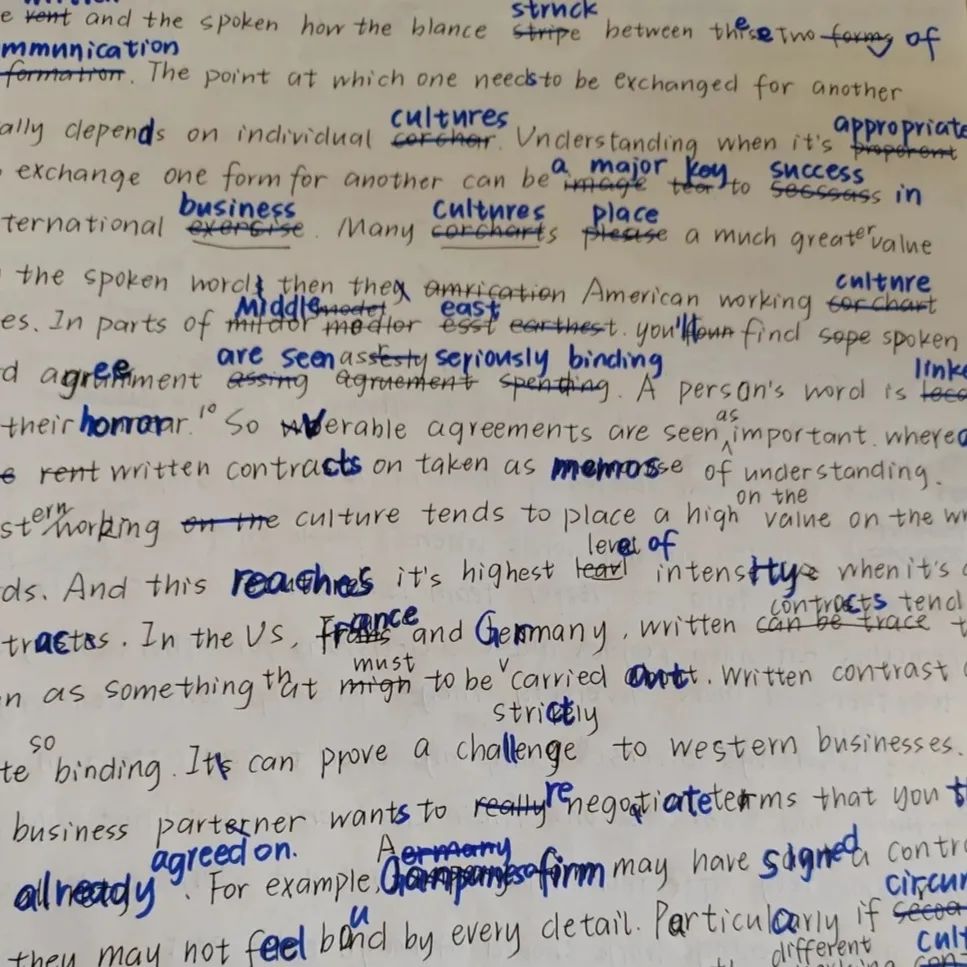 struck
e rent and the spoken how the blance stripe between these two forms of
mmunication
formation. The point at which one needs to be exchanged for another
cultures appropriate
ally depends on individual corchar. Understanding when it's proporent
a major key success
exchange one form for another can be image tear to secsass in
business cultures place
ternational exercise. Many corcharts please a much greater value
culture
the spoken word, then they amrication American working corchart
Middle model east
es. In parts of mildor medlor esst earthest. you'll find sope spoken
are seen seriously binding linke
d agreement assing agruement spending. A person's word is
as
their honour. 10 So verable agreements are seen important. where
e rent written contracts on taken as memos of understanding.
on the
stern working on the culture tends to place a high value on the wr
level of
ds. And this reaches it's highest learl intensity when it's
contracts tend
tractes. In the US, France and Germany, written can be trace t
must
n as something that migh to be carried out. Written contrast
strictly
so
te binding. It can prove a challenge to western businesses.
re
business parterner wants to really negotiate terms that you t
agreed on. A ermany
already. For example, firm may have signed a contr
circum
u
they may not feel bound by every detail. Particularly if secoa
different cult